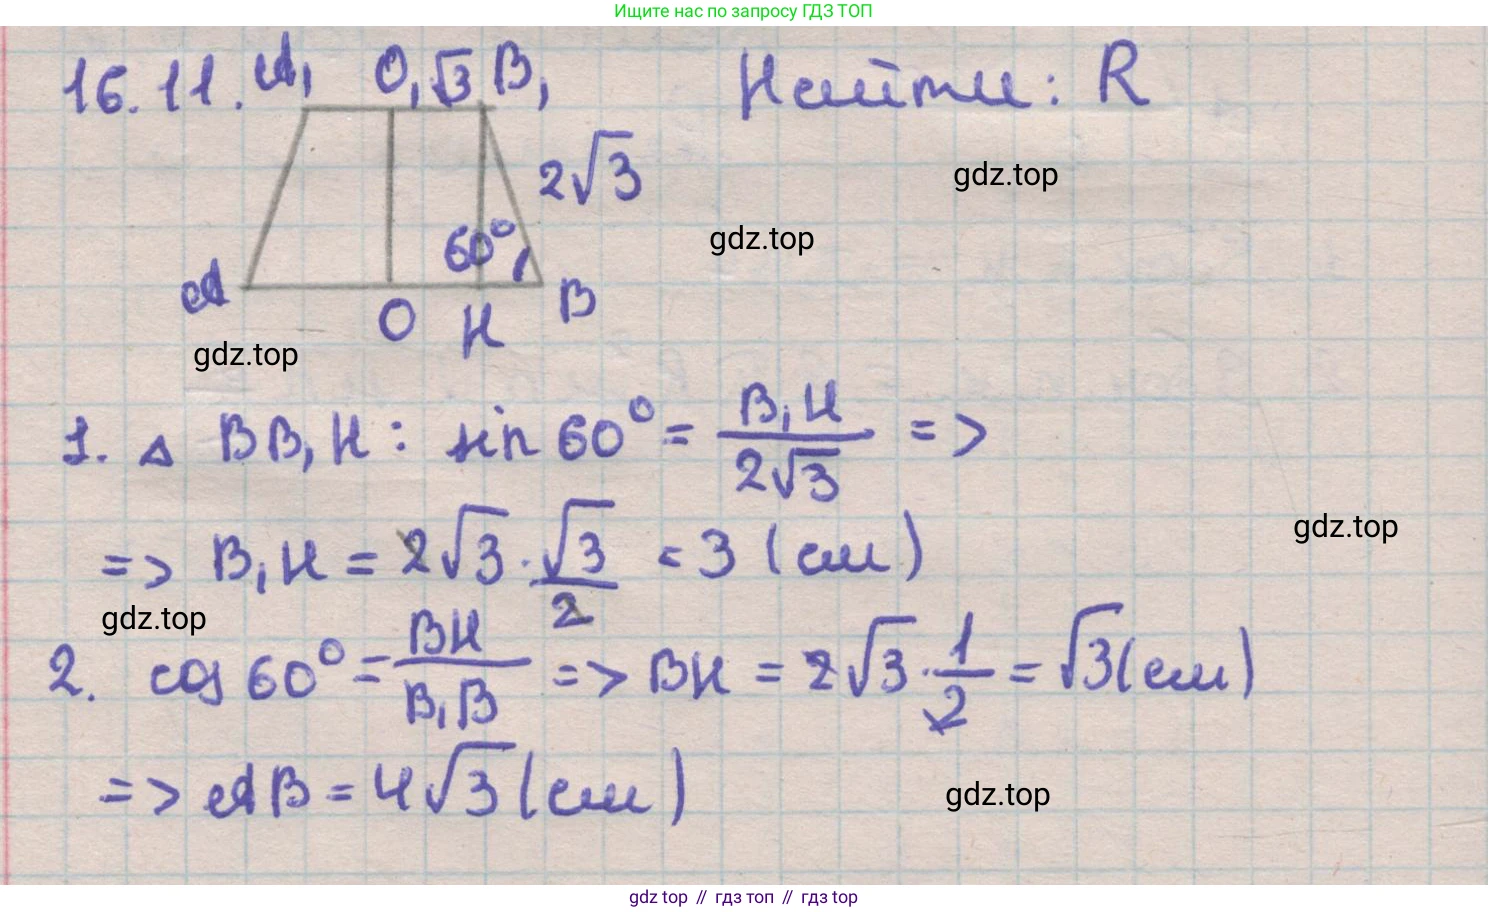 Ищите нас по запросу ГДЗ ТОП
16.11. A₁ O₁ √3 B₁ Найти: R
2√3
gdz.top
gdz.top
60°
A O H B
gdz.top
1. △ BB₁H: sin 60° = B₁H / 2√3 =>
gdz.top
=> B₁H = 2√3 · √3/2 = 3 (см)
gdz.top
2. cos 60° = BH / B₁B => BH = 2√3 · 1/2 = √3 (см)
=> AB = 4√3 (см)
gdz.top
gdz top // гдз топ // гдз top